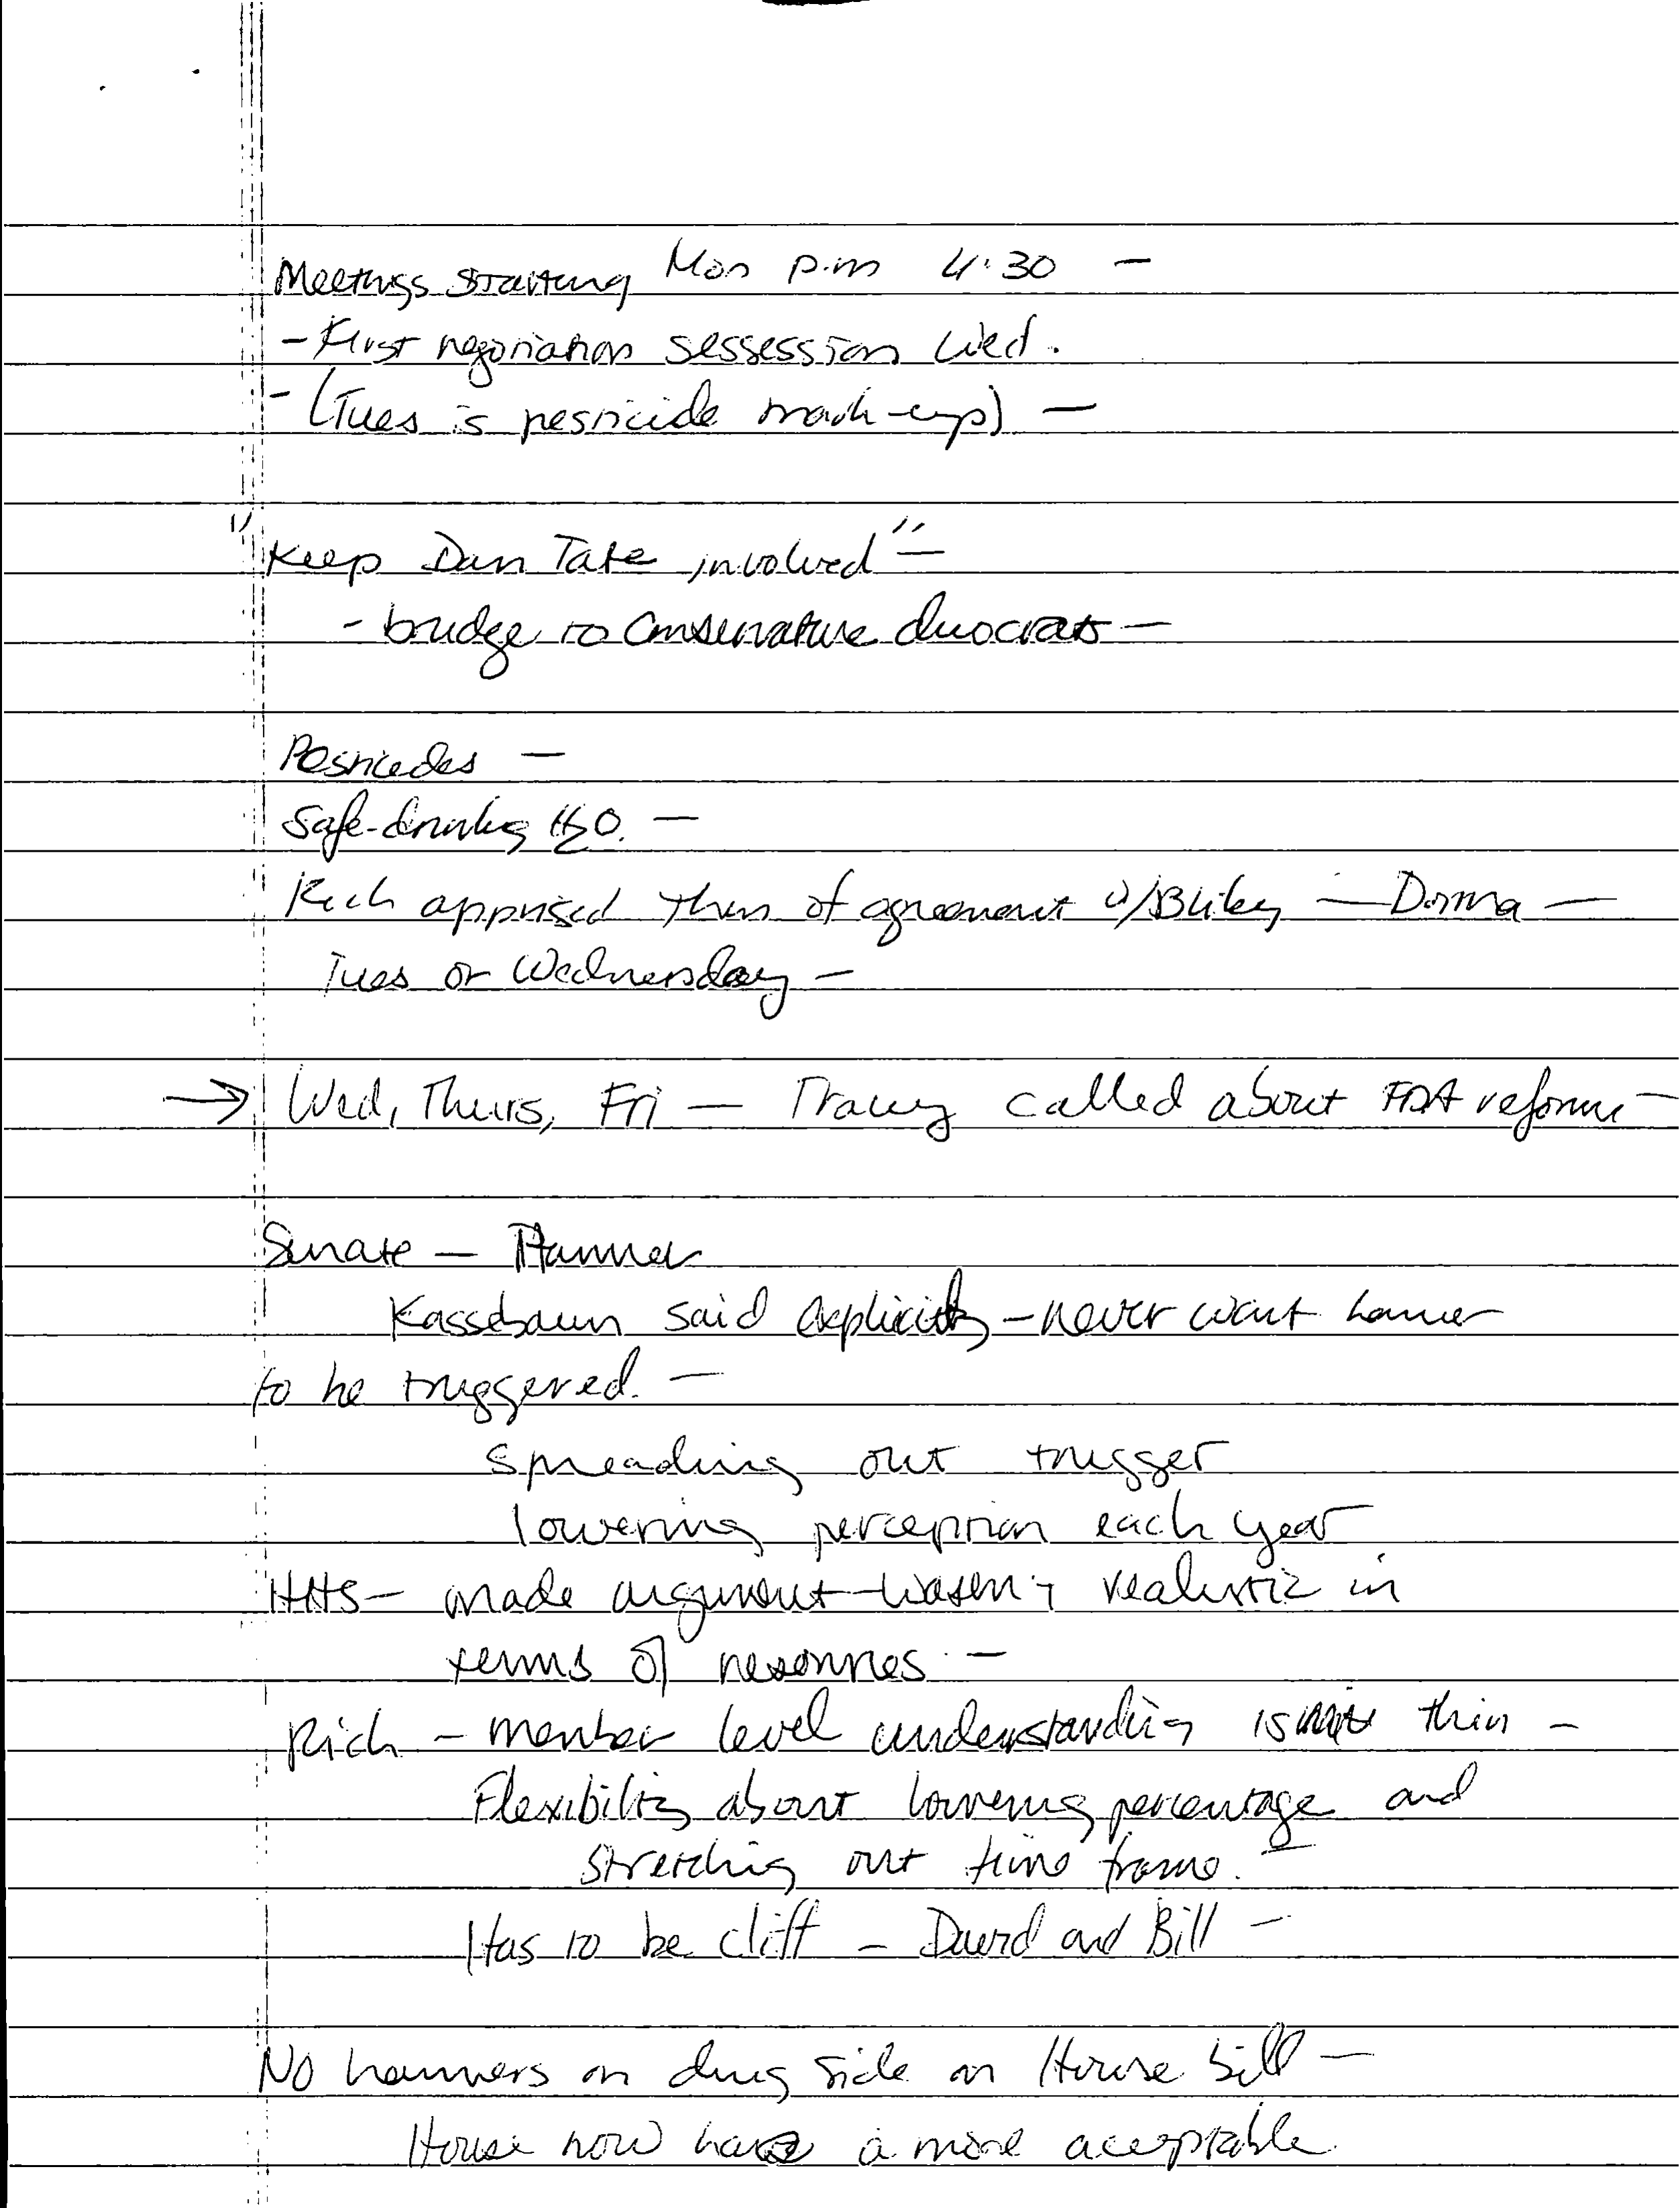 Meetings starting Mon p.m 4:30 —
- First negotiation sessession Wed.
- (Tues is pesticide mark-up) —
"Keep Dan Tate involved" —
- bridge to conservative democrats —
Pesticides —
Safe-drinking H2O. —
Rich apprised them of agreement w/Bliley — Donna —
Tues or Wednesday —
→ Wed, Thurs, Fri — Tracey called about FDA reform —
Senate — Hammer
Kassebaum said explicitly - never want hammer
to be triggered. —
Spreading out trigger
lowering perception each year
HHS - made argument - wasn't realistic in
terms of resources —
Rich - member level understanding is thin -
Flexibility about lowering percentage and
stretching out time frame. —
Has to be cliff - David and Bill —
No hammers on drug side on House bill —
House now has a more acceptable